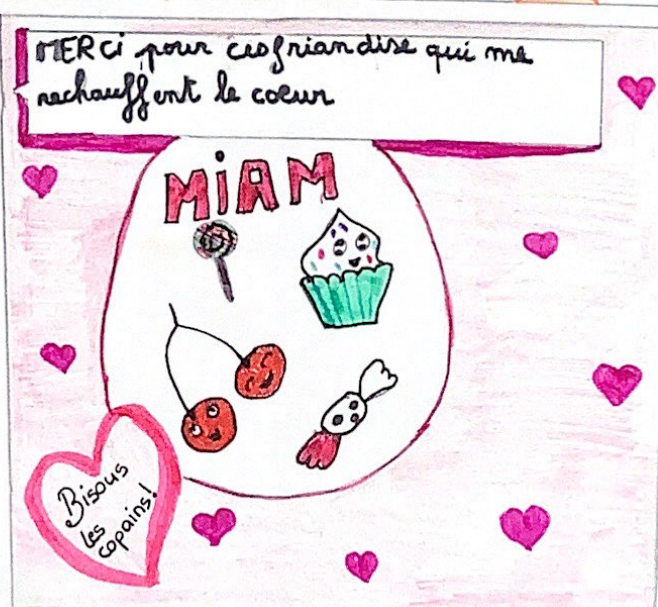 MERCi pour ces friandise qui me
rechauffent le coeur
MiAM
Bisous
les
copains!